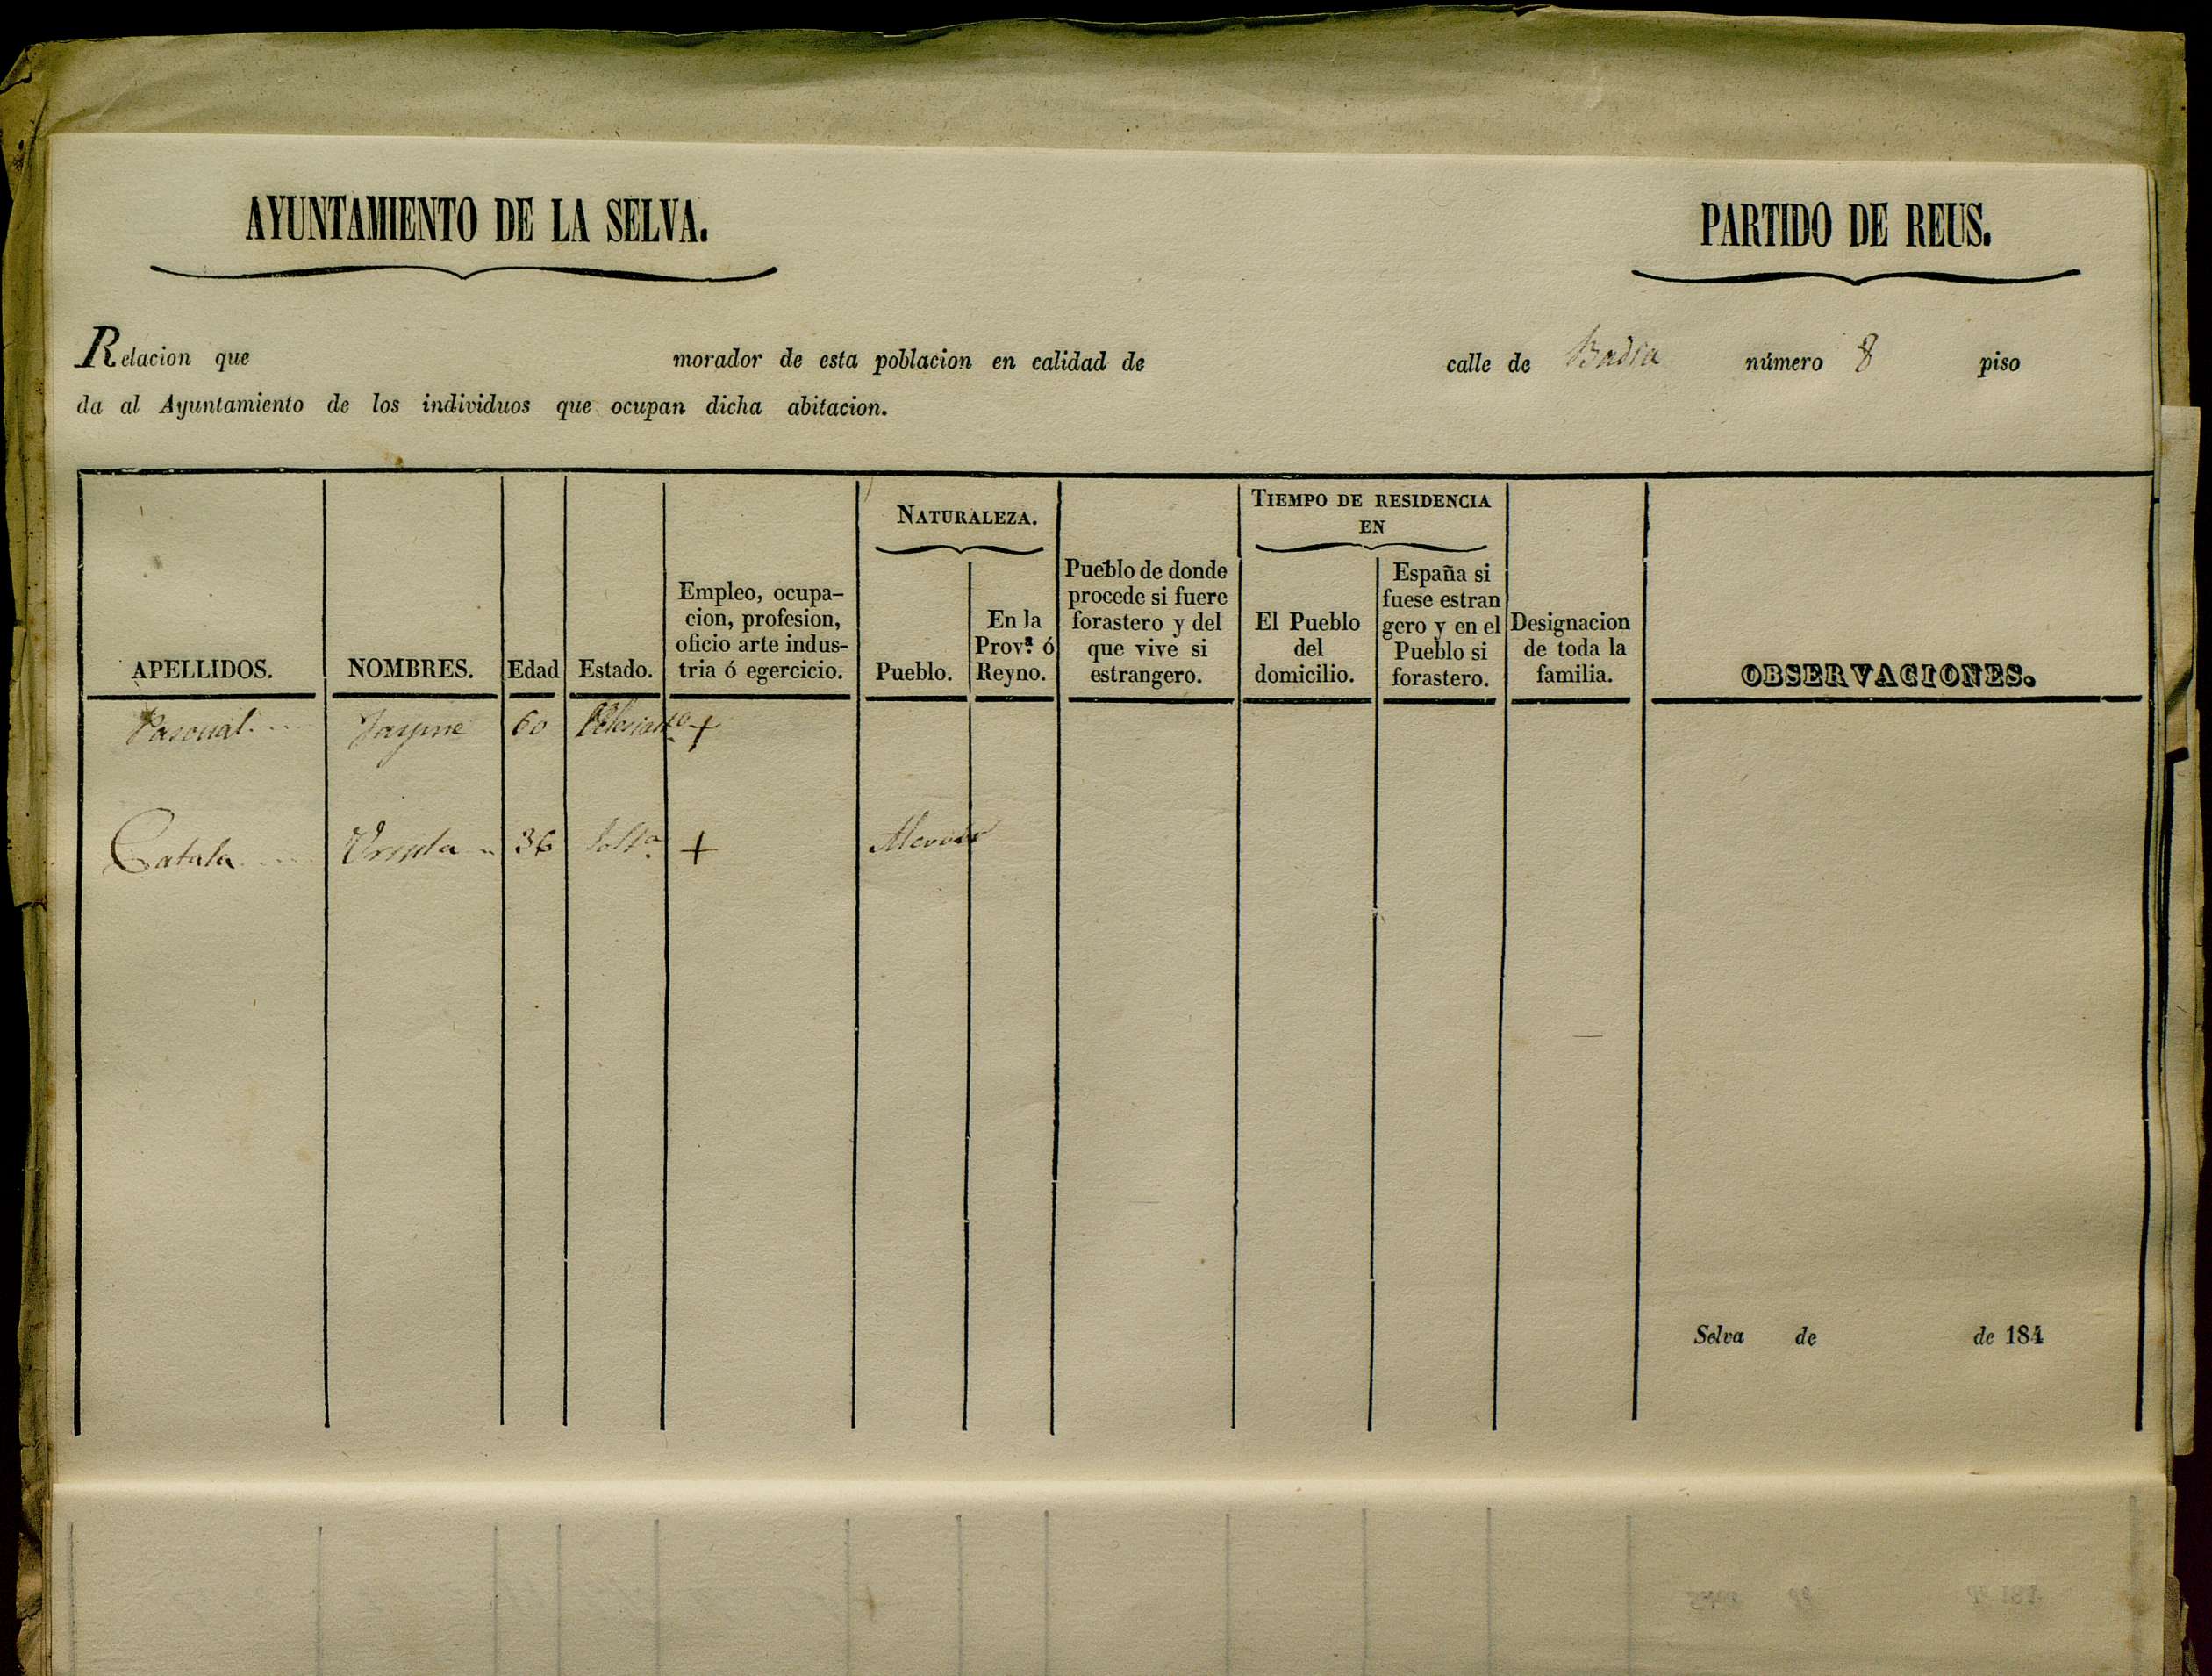 AYUNTAMIENTO DE LA SELVA.
PARTIDO DE REUS.
Relacion que morador de esta poblacion en calidad de calle de Badia número 8 piso
da al Ayuntamiento de los individuos que ocupan dicha abitacion.
APELLIDOS.
NOMBRES.
Edad
Estado.
Empleo, ocupa-
cion, profesion,
oficio arte indus-
tria ó egercicio.
NATURALEZA.
Pueblo.
En la
Prov.ª ó
Reyno.
Pueblo de donde
procede si fuere
forastero y del
que vive si
estrangero.
TIEMPO DE RESIDENCIA
EN
El Pueblo
del
domicilio.
España si
fuese estran
gero y en el
Pueblo si
forastero.
Designacion
de toda la
familia.
OBSERVACIONES.
Pascual Jayme 60 +
Catala Ursula 36 Solt.a +
Selva de de 184